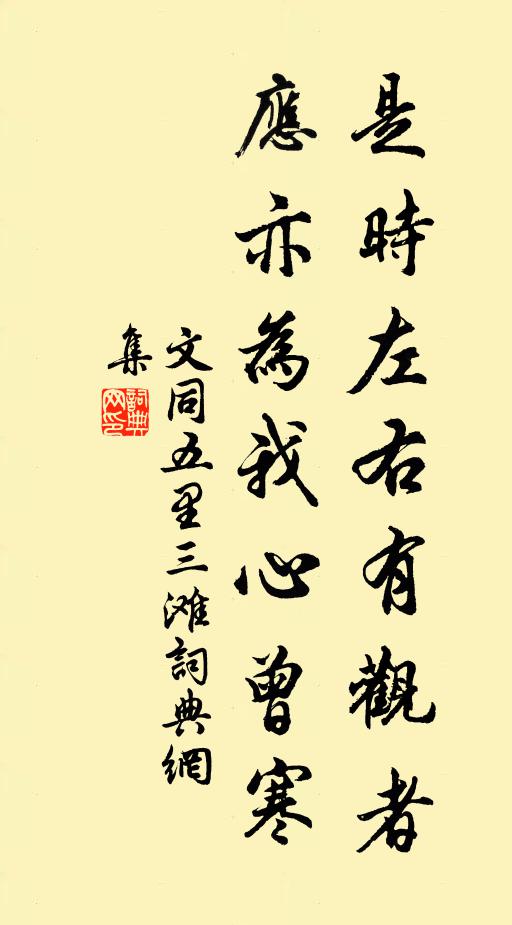 是時左右有觀者
應亦為我心曾寒
文同五里三滩詞典網
集
詞典
网印